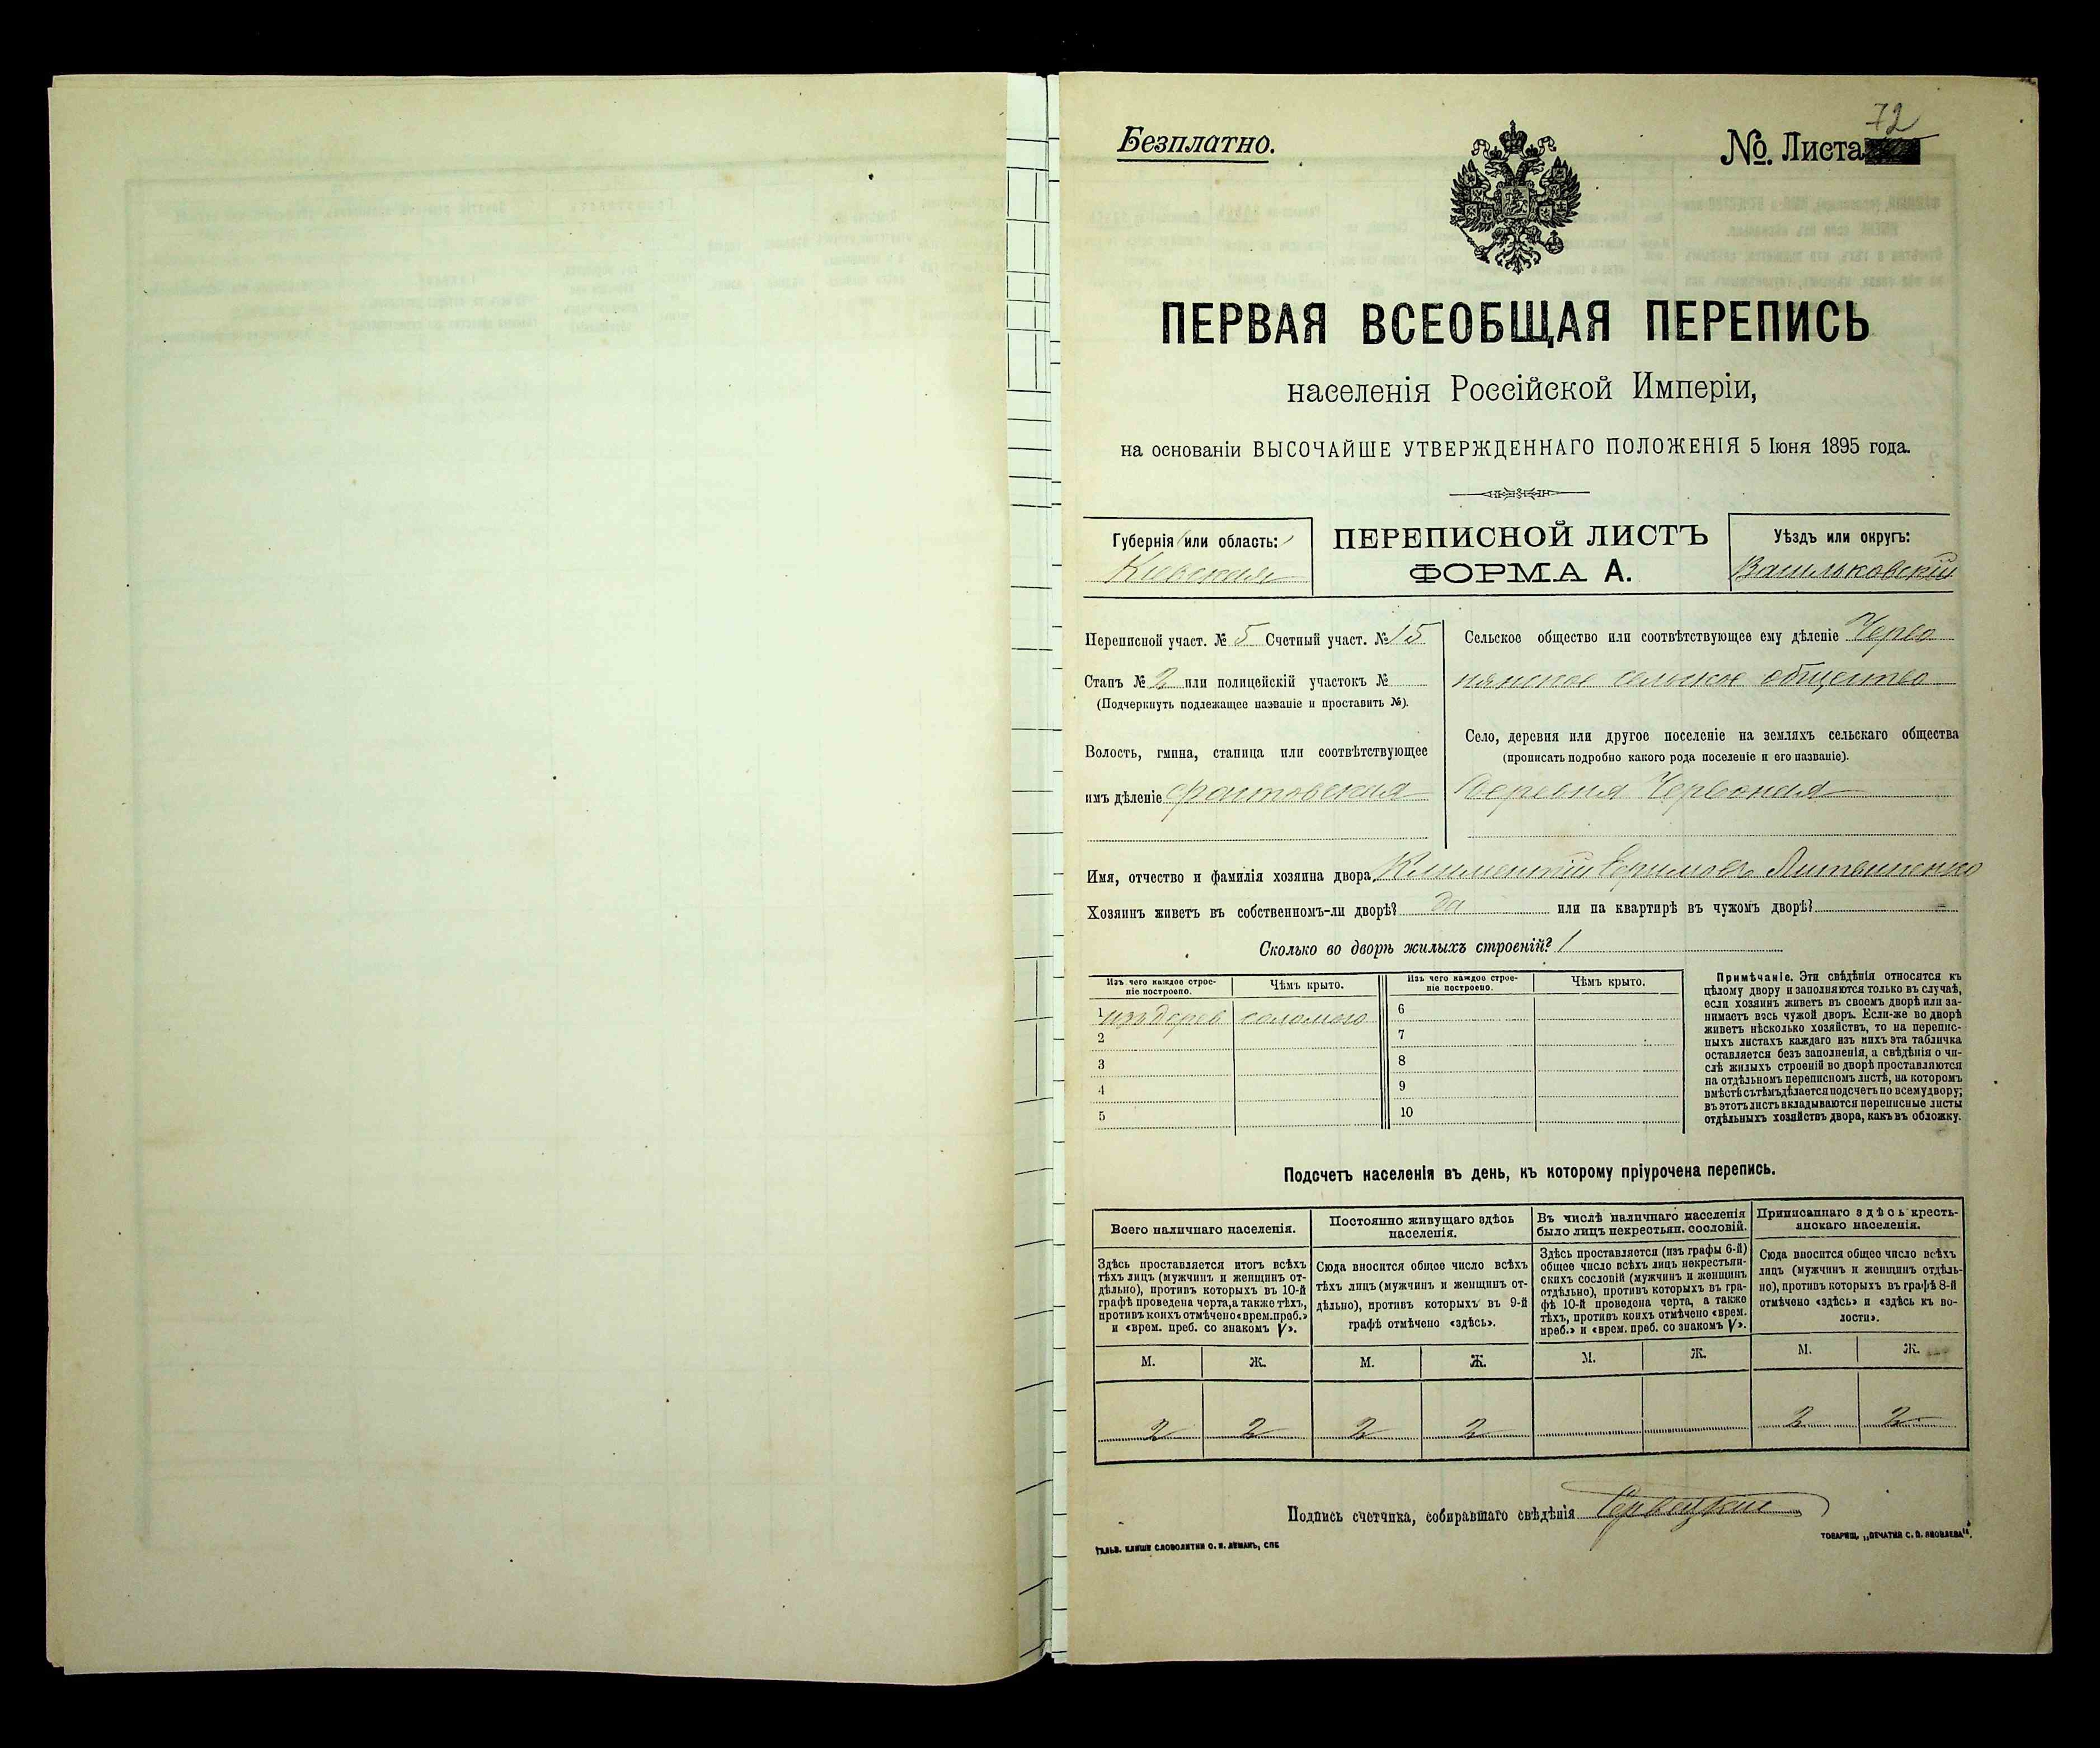 Безплатно.
72
№. Листа
ПЕРВАЯ ВСЕОБЩАЯ ПЕРЕПИСЬ
населенія Россійской Имперіи,
на основаніи ВЫСОЧАЙШЕ УТВЕРЖДЕННАГО ПОЛОЖЕНІЯ 5 Іюня 1895 года.
Губернія или область:
Кіевская
ПЕРЕПИСНОЙ ЛИСТЪ
ФОРМА А.
Уѣздъ или округъ:
Васильковскій
Переписной участ. № 5 Счетный участ. № 15
Станъ № 2 или полицейскій участокъ №
(Подчеркнуть подлежащее названіе и проставить №).
Волость, гмина, станица или соотвѣтствующее
имъ дѣленіе
Сельское общество или соотвѣтствующее ему дѣленіе Черво
нянское сельское общество
Село, деревня или другое поселеніе на земляхъ сельскаго общества
(прописать подробно какого рода поселеніе и его названіе).
Деревня Червоная
Имя, отчество и фамилія хозяина двора,
Хозяинъ живетъ въ собственномъ-ли дворѣ? да или на квартирѣ въ чужомъ дворѣ?
Сколько во дворѣ жилыхъ строеній? 1
Изъ чего каждое строе-
ніе построено.
Чѣмъ крыто.
Изъ чего каждое строе-
ніе построено.
Чѣмъ крыто.
1 изъ дерев соломою
2
3
4
5
6
7
8
9
10
Примѣчаніе. Эти свѣдѣнія относятся къ
цѣлому двору и заполняются только въ случаѣ,
если хозяинъ живетъ въ своемъ дворѣ или за-
нимаетъ весь чужой дворъ. Если-же во дворѣ
живетъ нѣсколько хозяйствъ, то на перепис-
ныхъ листахъ каждаго изъ нихъ эта табличка
оставляется безъ заполненія, а свѣдѣнія о чи-
слѣ жилыхъ строеній во дворѣ проставляются
на отдѣльномъ переписномъ листѣ, на которомъ
вмѣстѣ съ тѣмъ дѣлается подсчетъ по всему двору;
въ этотъ листъ вкладываются переписные листы
отдѣльныхъ хозяйствъ двора, какъ въ обложку.
Подсчетъ населенія въ день, къ которому пріурочена перепись.
Всего наличнаго населенія.
Здѣсь проставляется итогъ всѣхъ
тѣхъ лицъ (мужчинъ и женщинъ от-
дѣльно), противъ которыхъ въ 10-й
графѣ проведена черта, а также тѣхъ,
противъ коихъ отмѣчено «врем. преб.»
и «врем. преб. со знакомъ V».
Постоянно живущаго здѣсь
населенія.
Сюда вносится общее число всѣхъ
тѣхъ лицъ (мужчинъ и женщинъ от-
дѣльно), противъ которыхъ въ 9-й
графѣ отмѣчено «здѣсь».
Въ числѣ наличнаго населенія
было лицъ некрестьян. сословій.
Здѣсь проставляется (изъ графы 6-й)
общее число всѣхъ лицъ некрестьян-
скихъ сословій (мужчинъ и женщинъ
отдѣльно), противъ которыхъ въ гра-
фѣ 10-й проведена черта, а также
тѣхъ, противъ коихъ отмѣчено «врем.
преб.» и «врем. преб. со знакомъ V».
Приписаннаго здѣсь кресть-
янскаго населенія.
Сюда вносится общее число всѣхъ
лицъ (мужчинъ и женщинъ отдѣль-
но), противъ которыхъ въ графѣ 8-й
отмѣчено «здѣсь» и «здѣсь къ во-
лости».
М. Ж. М. Ж. М. Ж. М. Ж.
2 2 2 2 2 2
Подпись счетчика, собиравшаго свѣдѣнія
ГАЛЬВ. КЛИШЕ СЛОВОЛИТНИ О. И. ЛЕМАНЪ, СПБ
ТОВАРИЩ. „ПЕЧАТНЯ С. П. ЯКОВЛЕВА“.